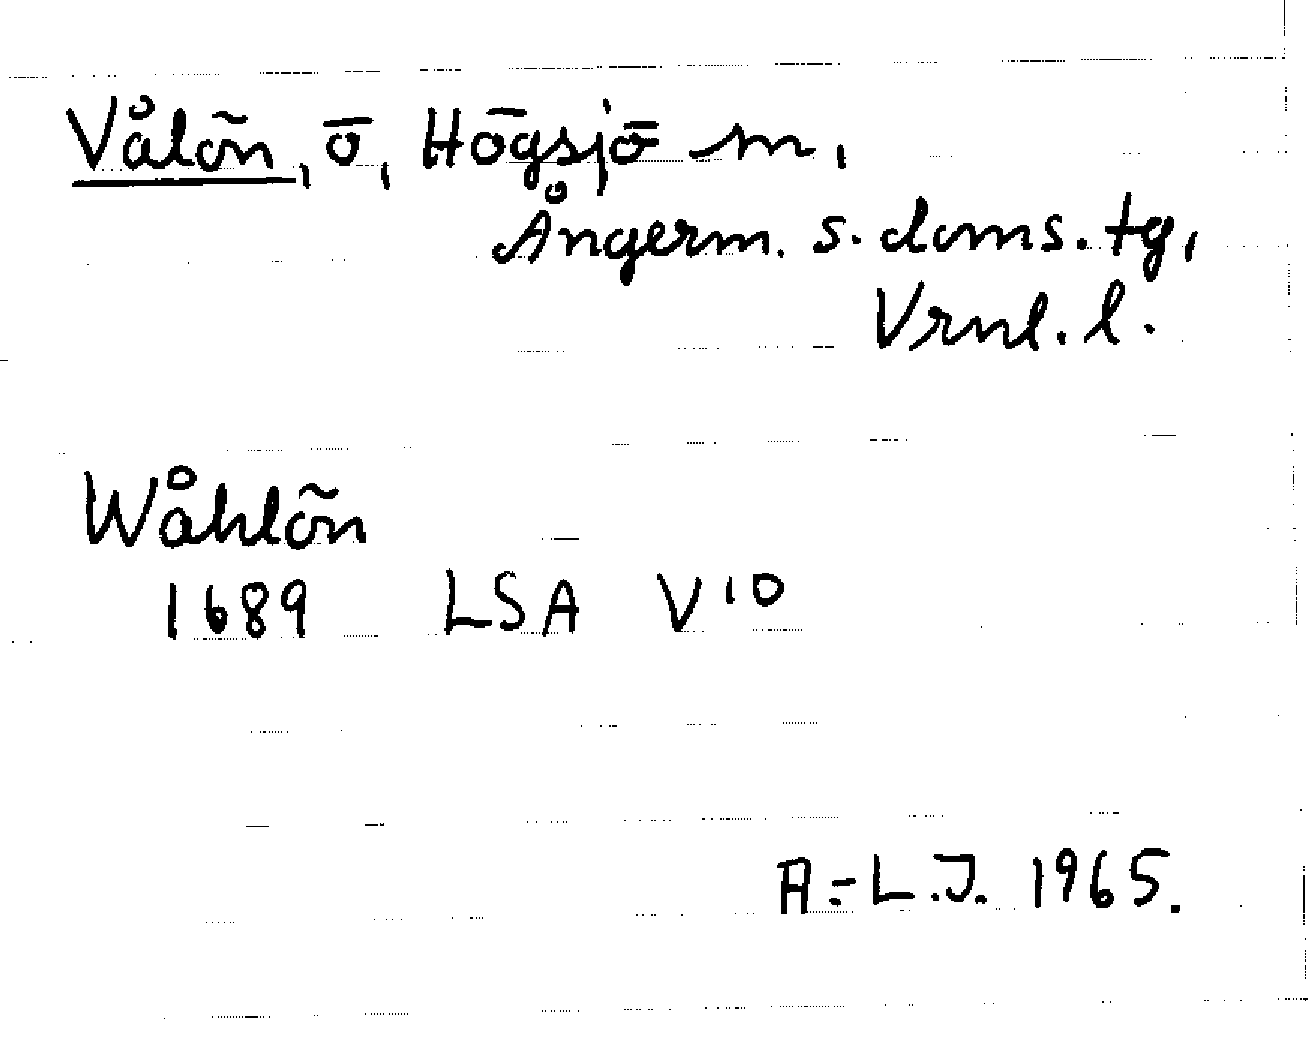 Vålön, ö, Högsjö sn,
Ångerm. s. doms. tg,
Vrnl. l.
Wåhlön
1689 LSA V10
A-L.J. 1965.